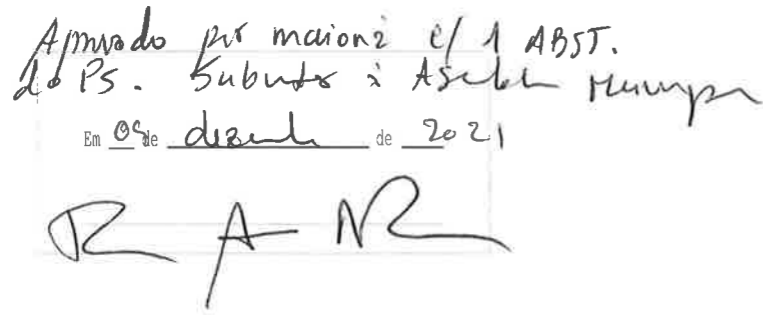 Aprovado por maioria c/ 1 ABST.
do PS. Submeter à Assembleia Municipal
Em 09 de dezembro de 2021